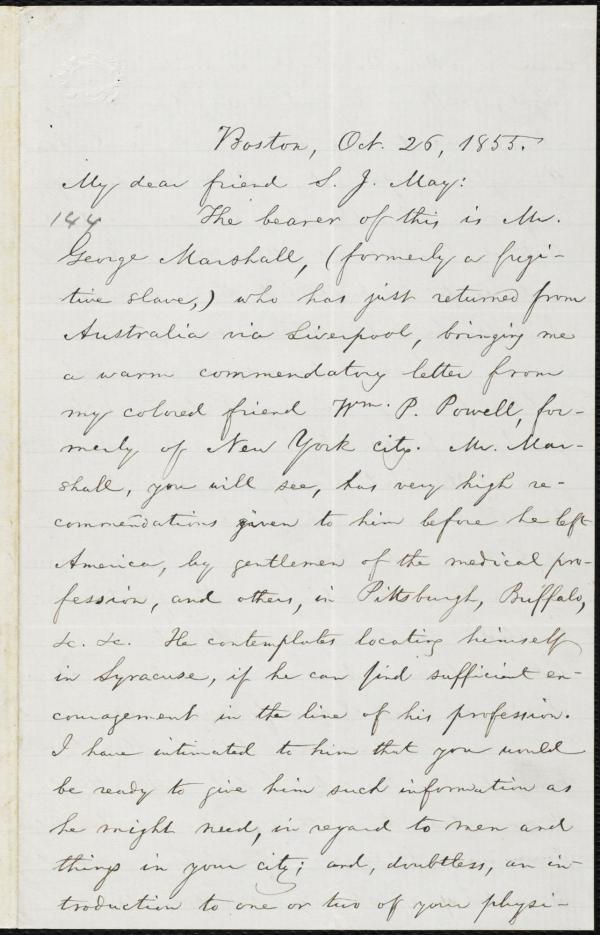 Boston, Oct. 26, 1855.
My dear friend S. J. May:
144 The bearer of this is Mr.
George Marshall, (formerly a fugi-
tive slave,) who has just returned from
Australia via Liverpool, bringing me
a warm commendatory letter from
my colored friend Wm. P. Powell, for-
merly of New York city. Mr. Mar-
shall, you will see, has very high re-
commendations given to him before he left
America, by gentlemen of the medical pro-
fession, and others, in Pittsburgh, Buffalo,
&c. &c. He contemplates locating himself
in Syracuse, if he can find sufficient en-
couragement in the line of his profession.
I have intimated to him that you would
be ready to give him such information as
he might need, in regard to men and
things in your city; and, doubtless, an in-
troduction to one or two of your physi-